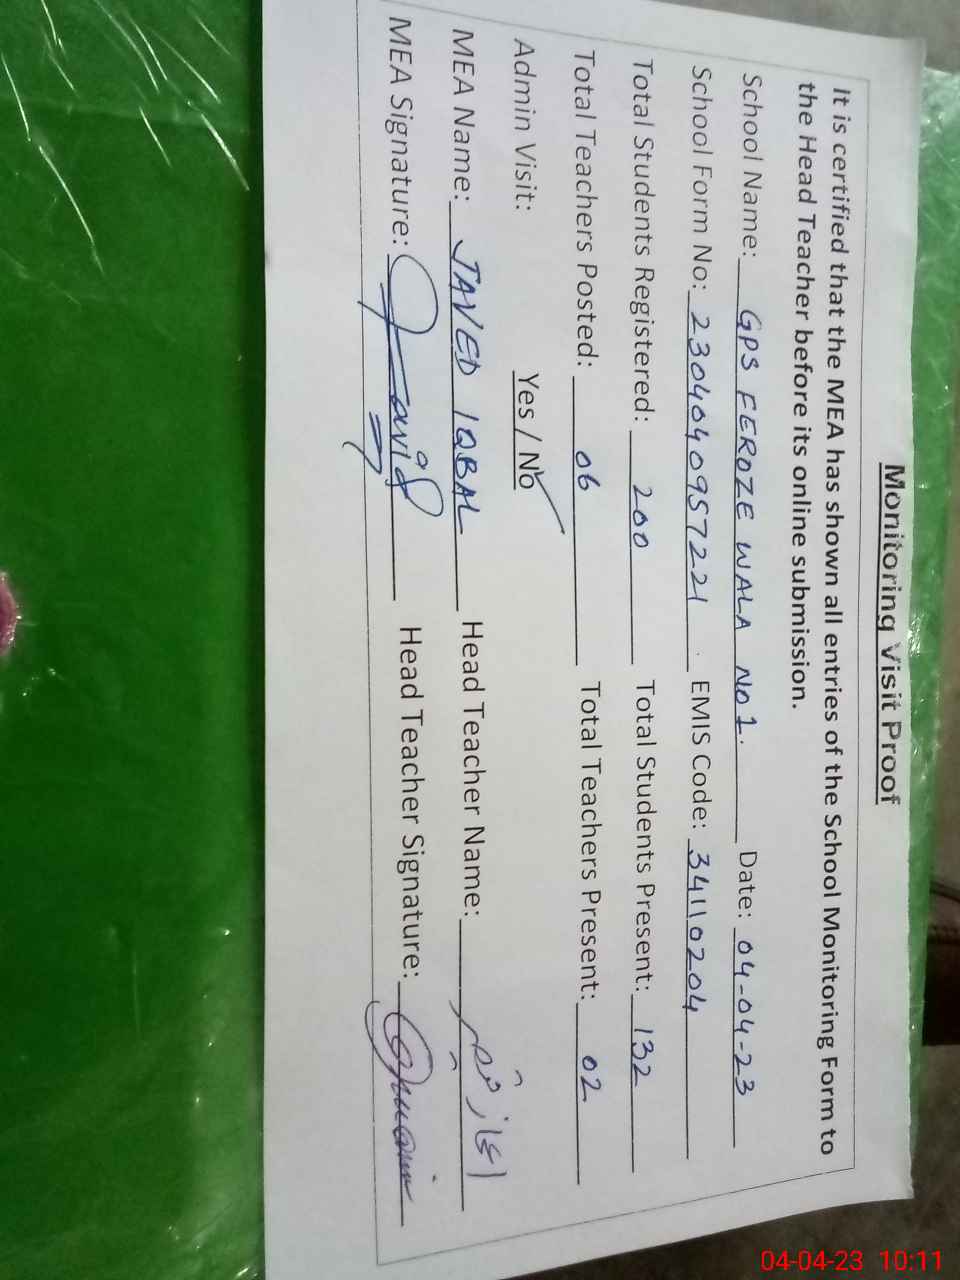 Monitoring Visit Proof
It is certified that the MEA has shown all entries of the School Monitoring Form to
the Head Teacher before its online submission.
School Name: GPS FEROZE WALA NO 1. Date: 04-04-23
School Form No: 2304040957221 EMIS Code: 34110204
Total Students Registered: 200 Total Students Present: 132
Total Teachers Posted: 06 Total Teachers Present: 02
Admin Visit: Yes / No
MEA Name: JAVED IQBAL Head Teacher Name:
MEA Signature: Javid Head Teacher Signature:
04-04-23 10:11